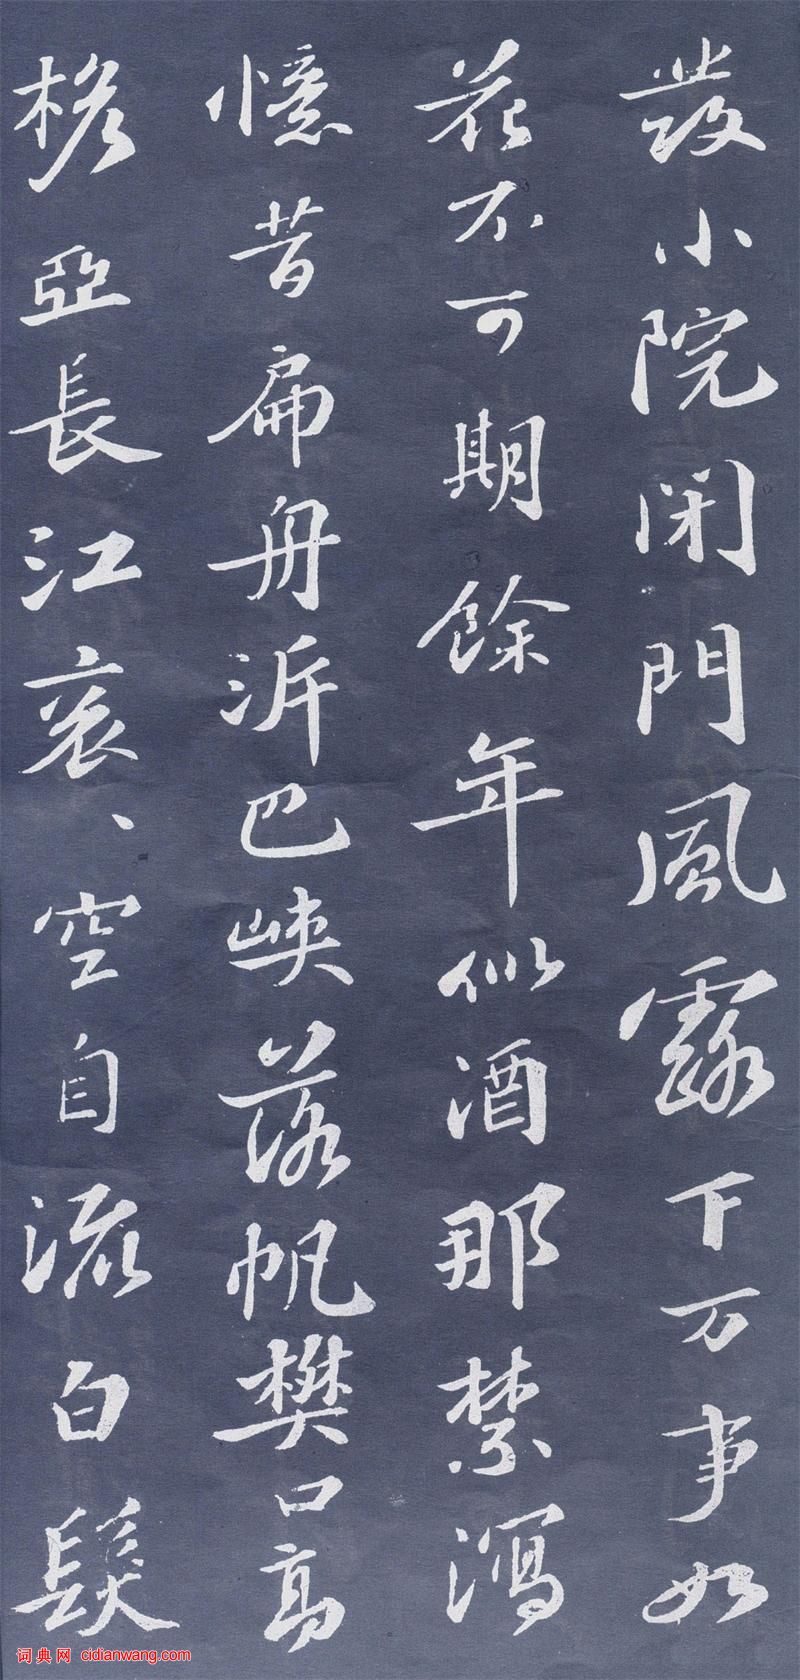 發小院閉門風露下万事如
花不可期餘年似酒那禁瀉
憶昔扁舟泝巴峽落帆樊口高
桅亞長江衮、空自流白髮
词典网 cidianwang.com